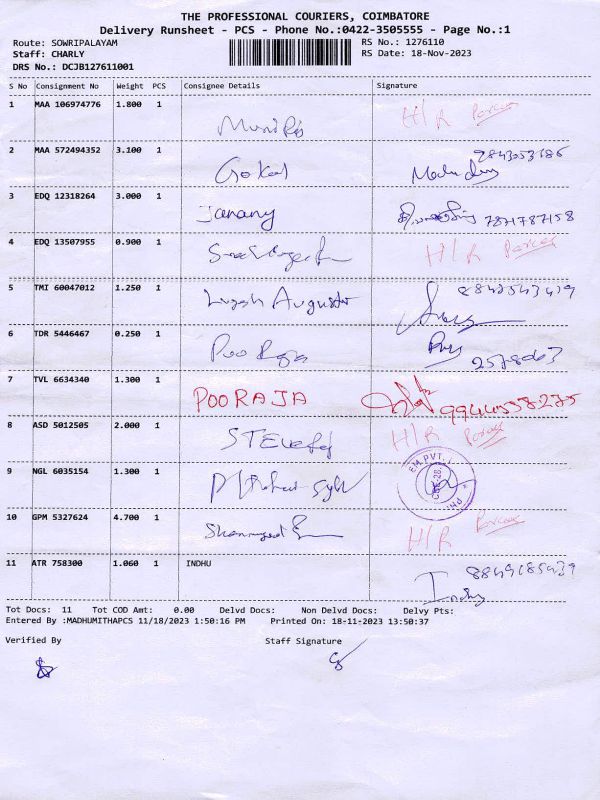 THE PROFESSIONAL COURIERS, COIMBATORE
Delivery Runsheet - PCS - Phone No.:0422-3505555 - Page No.:1
Route: SOWRIPALAYAM RS No.: 1276110
Staff: CHARLY RS Date: 18-Nov-2023
DRS No.: DCJB127611001
S No Consignment No Weight PCS Consignee Details Signature
1 MAA 106974776 1.800 1 H/R
2 MAA 572494352 3.100 1 Gokul 9843053186
3 EDQ 12318264 3.000 1 Janany 7871787158
4 EDQ 13507955 0.900 1 H/R
5 TMI 60047012 1.250 1 Augustor
6 TDR 5446467 0.250 1 Poo Raja
7 TVL 6634340 1.300 1 POORAJA
8 ASD 5012505 2.000 1 H/R
9 NGL 6035154 1.300 1
10 GPM 5327624 4.700 1 H/R
11 ATR 758300 1.060 1 INDHU Indhu
Tot Docs: 11 Tot COD Amt: 0.00 Delvd Docs: Non Delvd Docs: Delvy Pts:
Entered By :MADHUMITHAPCS 11/18/2023 1:50:16 PM Printed On: 18-11-2023 13:50:37
Verified By Staff Signature